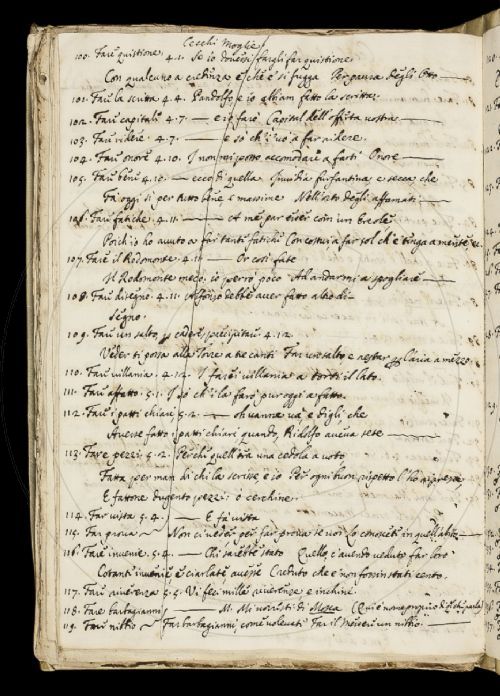 Cecchi Moglie
100. Fare quistione. 4.1. Se io dovessi fargli far quistione
Con qualcuno a credenza e che e' si fugga Per paura degli Otto
101. Fare la scritta. 4.4. Pandolfo, e io abbiam fatto la scritta.
102. Fare capitale. 4.7. — e io farò Capital dell'offerta vostra
103. Far ridere. 4.7. — e so ch'i' vo' a far ridere.
104. Fare onore 4.10. I' non mi posso accomodare a farti Onore
105. Fare bene 4.10. — ecco di quella Invidia furfantina e secca che
Fa oggi sì per tutto bene e massime Nell'
106. Fare fatiche. 4.11. — A me par esser come un Ercole
Poich'io ho avuto a far tante fatiche Con costui a far sol ch'e' tenga a mente
107. Fare il Rodomonte. 4.11 — Or così fate
Il Rodomonte meco, io verrò poco Ad andarmi a spogliare
108. Far disegno. 4.11. Alfonso debbe aver fatto altro di-
segno.
109. Fare un salto, cadere, precipitare. 4.12.
Veder ti possa alla Torre a tre canti Far un salto e restar per l'aria a mezzo.
110. Fare villania. 4.12. I' farei villania a torti il lato.
111. Fare affatto. 5.1. I' so ch'i' la farò pur oggi affatto.
112. Fare i patti chiari 5.2. — oh vanne va' e digli che
Avesse fatto i patti chiari quando, Ridolfo aveva sete
113. Fare pezzi. 5.2. Perchè quell'era una cedola a voto
Fatta per man di chi la scrisse, e io Per ogni buon rispetto l'ho
E fattone dugento pezzi: o cerchine.
114. Far vista 5.4. — E fa vista
115. Far prova — Non ci veder per far prova se voi lo conoscete in quell'abito
116. Fare invenie. 5.4. — Chi sarebbe stato Quello, ch'avendo veduto far loro
Cotante invenie e ciarlate avesse Creduto che e' non fossin stati
117. Fare riverenza 5.5. Vi feci mille riverenze e inchini.
118. Fare barbagianni — M. Mi vorresti di Mosca (Qui è nome proprio di chi parla)
119. Fare nibbio — Far barbagianni, come volevate Far il Messere un nibbio.